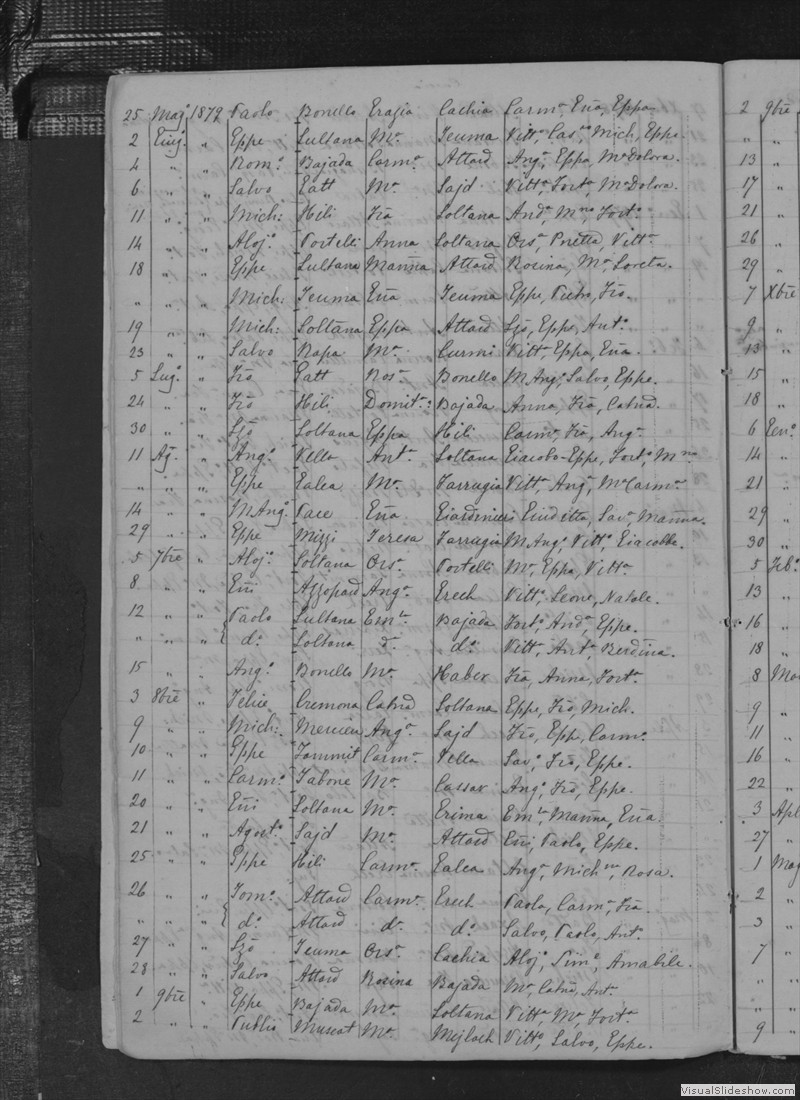 25 Mag.º 1879 Paolo Bonello Grazia Cachia Carmª, Gña, Eppa
2 Giug.º " Eppe Sultana Mª Zeuma Vittª, Casº, Mich, Eppe.
4 " " Romº Bajada Carmª Attard Angª, Eppa, Mª Dolora.
6 " " Salvo Gatt Mª Sajd Vittª, Fortª, Mª Dolora.
11 " " Mich: Hili Fra Soltana Andª, Fortª
14 " " Alojº Portelli Anna Soltana Orsª, Vittª
18 " " Eppe Sultana Manña Attard Rosina, Mª, Loreta.
" " " Mich: Zeuma Gña Zeuma Eppe, Pietro, Fro.
19 " " Mich: Soltana Eppa Attard Lzo, Eppe, Antº
23 " " Salvo Rapa Mª Curmi Vittª, Eppa, Gña.
5 Lugº " Fro Gatt Rosª Bonello M Angº, Salvo, Eppe.
24 " " Fro Hili Domitª: Bajada Anna, Fra, Catnª.
30 " " Lzo Soltana Eppa Hili Carmª, Fra, Angª
11 Agº " Angº Vella Antª Soltana Giacobo-Eppe, Fortº,
" " " Eppe Galea Mª Farrugia Vittª, Angª, Mª Carmª
14 " " M Angº Pace Gña Giuditta, Savª, Manña.
29 " " Eppe Mizzi Teresa Farrugia M Angº, Vittº, Giacobbe.
5 7bre " Alojº Soltana Orsª Portelli Mª, Eppa, Vittª
8 " " Gñi Azzopard Angª Grech Vittº, Leone, Natale.
12 " " Paolo Sultana Emlª Bajada Fortº, Andª, Eppe.
" " " dº Soltana dª dº Vittª, Antª, Berdina.
15 " " Angº Bonello Mª Haber Fra, Anna, Fortª
3 8bre " Felice Cremona Catnª Soltana Eppe, Fro, Mich.
9 " " Mich: Mercieca Angª Sajd Fro, Epp, Carmª
10 " " Eppe Zammit Carmª Vella Savª, Fro, Eppe.
11 " " Carmº Tabone Mª Cassar Angº, Fro, Eppe.
20 " " Gñi Soltana Mª Grima Emlª, Manña, Gña.
21 " " Agostº Sajd Mª Attard Gñi, Paolo, Eppe.
25 " " Eppe Hili Carmª Galea Angª, Rosa.
26 " " Tomº Attard Carmª Grech Paola, Carmª, Fra.
" " " dº Attard dª dº Salvo, Paolo, Antº
27 " " Lzo Zeuma Orsª Cachia Alojº, Amabile.
28 " " Salvo Attard Rosina Bajada Mª, Catnª, Antª
1 9bre " Eppe Bajada Mª Soltana Vittª, Mª, Fortª
2 " " Publio Muscat Mª Mejlach Vittº, Salvo, Eppe.
2 9bre
" "
13 "
17 "
21 "
26 "
29 "
7 Xbre
9 "
13 "
15 "
18 "
6 Genº
14 "
21 "
29 "
30 "
5 Febº
13 "
16 "
18 "
8 Mar
9 "
11 "
16 "
22 "
3 Apl
27 "
1 Mag
2 "
3 "
7 "
" "
" "
9 "
VisualSlideshow.com